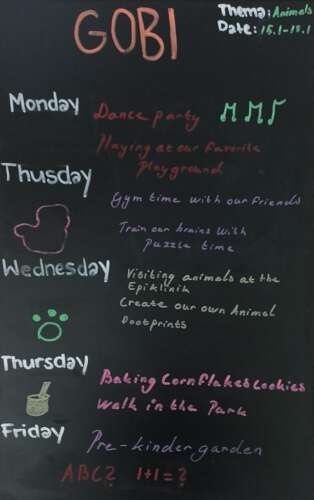 GOBI
Thema: Animals
Date: 15.1-19.1
Monday
Dance party
Playing at our favorite
Playground
Thusday
Gym time with our friends
Train our brains with
Puzzle time
Wednesday
Visiting animals at the
Epiklinik
Create our own Animal
footprints
Thursday
Baking Cornflakes Cookies
Walk in the Park
Friday
Pre-kindergarden
ABC? 1+1=?